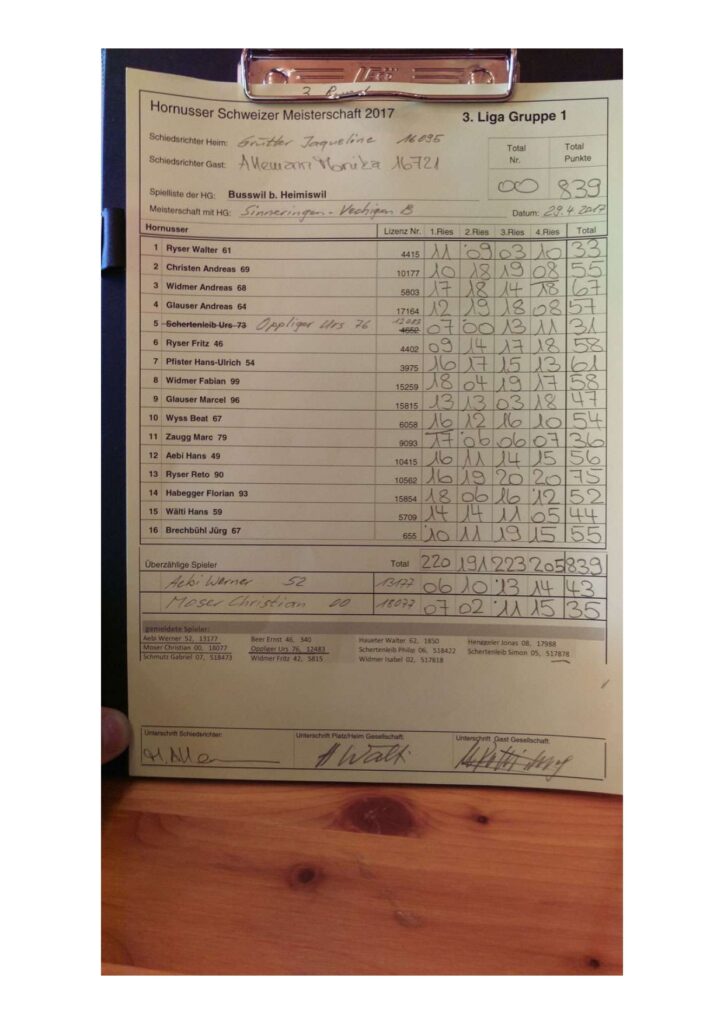 Hornusser Schweizer Meisterschaft 2017 3. Liga Gruppe 1
Schiedsrichter Heim: Grütter Jaqueline 16095
Schiedsrichter Gast: Allemann Monika 16721
Total Nr. Total Punkte
00 839
Spielliste der HG: Busswil b. Heimiswil
Meisterschaft mit HG: Sinneringen - Vechigen B Datum: 29.4.2017
Hornusser Lizenz Nr. 1.Ries 2.Ries 3.Ries 4.Ries Total
1 Ryser Walter 61 4415 11 09 03 10 33
2 Christen Andreas 69 10177 10 18 19 08 55
3 Widmer Andreas 68 5803 17 18 14 18 67
4 Glauser Andreas 64 17164 12 19 18 08 57
5 Schertenleib Urs 73 Oppliger Urs 76 4652 07 00 13 11 31
6 Ryser Fritz 46 4402 09 14 17 18 58
7 Pfister Hans-Ulrich 54 3975 16 17 15 13 61
8 Widmer Fabian 99 15259 18 04 19 17 58
9 Glauser Marcel 96 15815 13 13 03 18 47
10 Wyss Beat 67 6058 16 12 16 10 54
11 Zaugg Marc 79 9093 17 06 06 07 36
12 Aebi Hans 49 10415 16 11 14 15 56
13 Ryser Reto 90 10562 16 19 20 20 75
14 Habegger Florian 93 15854 18 06 16 12 52
15 Wälti Hans 59 5709 14 14 11 05 44
16 Brechbühl Jürg 67 655 10 11 19 15 55
Überzählige Spieler Total 220 191 223 205 839
Aebi Werner 52 13177 06 10 13 14 43
Moser Christian 00 18077 07 02 11 15 35
gemeldete Spieler:
Aebi Werner 52, 13177 Beer Ernst 46, 340 Haueter Walter 62, 1850 Henggeler Jonas 08, 17988
Moser Christian 00, 18077 Oppliger Urs 76, 12483 Schertenleib Philip 06, 518422 Schertenleib Simon 05, 517878
Schmutz Gabriel 07, 518473 Widmer Fritz 42, 5815 Widmer Isabel 02, 517818
Unterschrift Schiedsrichter: Unterschrift Platz/Heim Gesellschaft: Unterschrift Gast Gesellschaft:
H Wälti